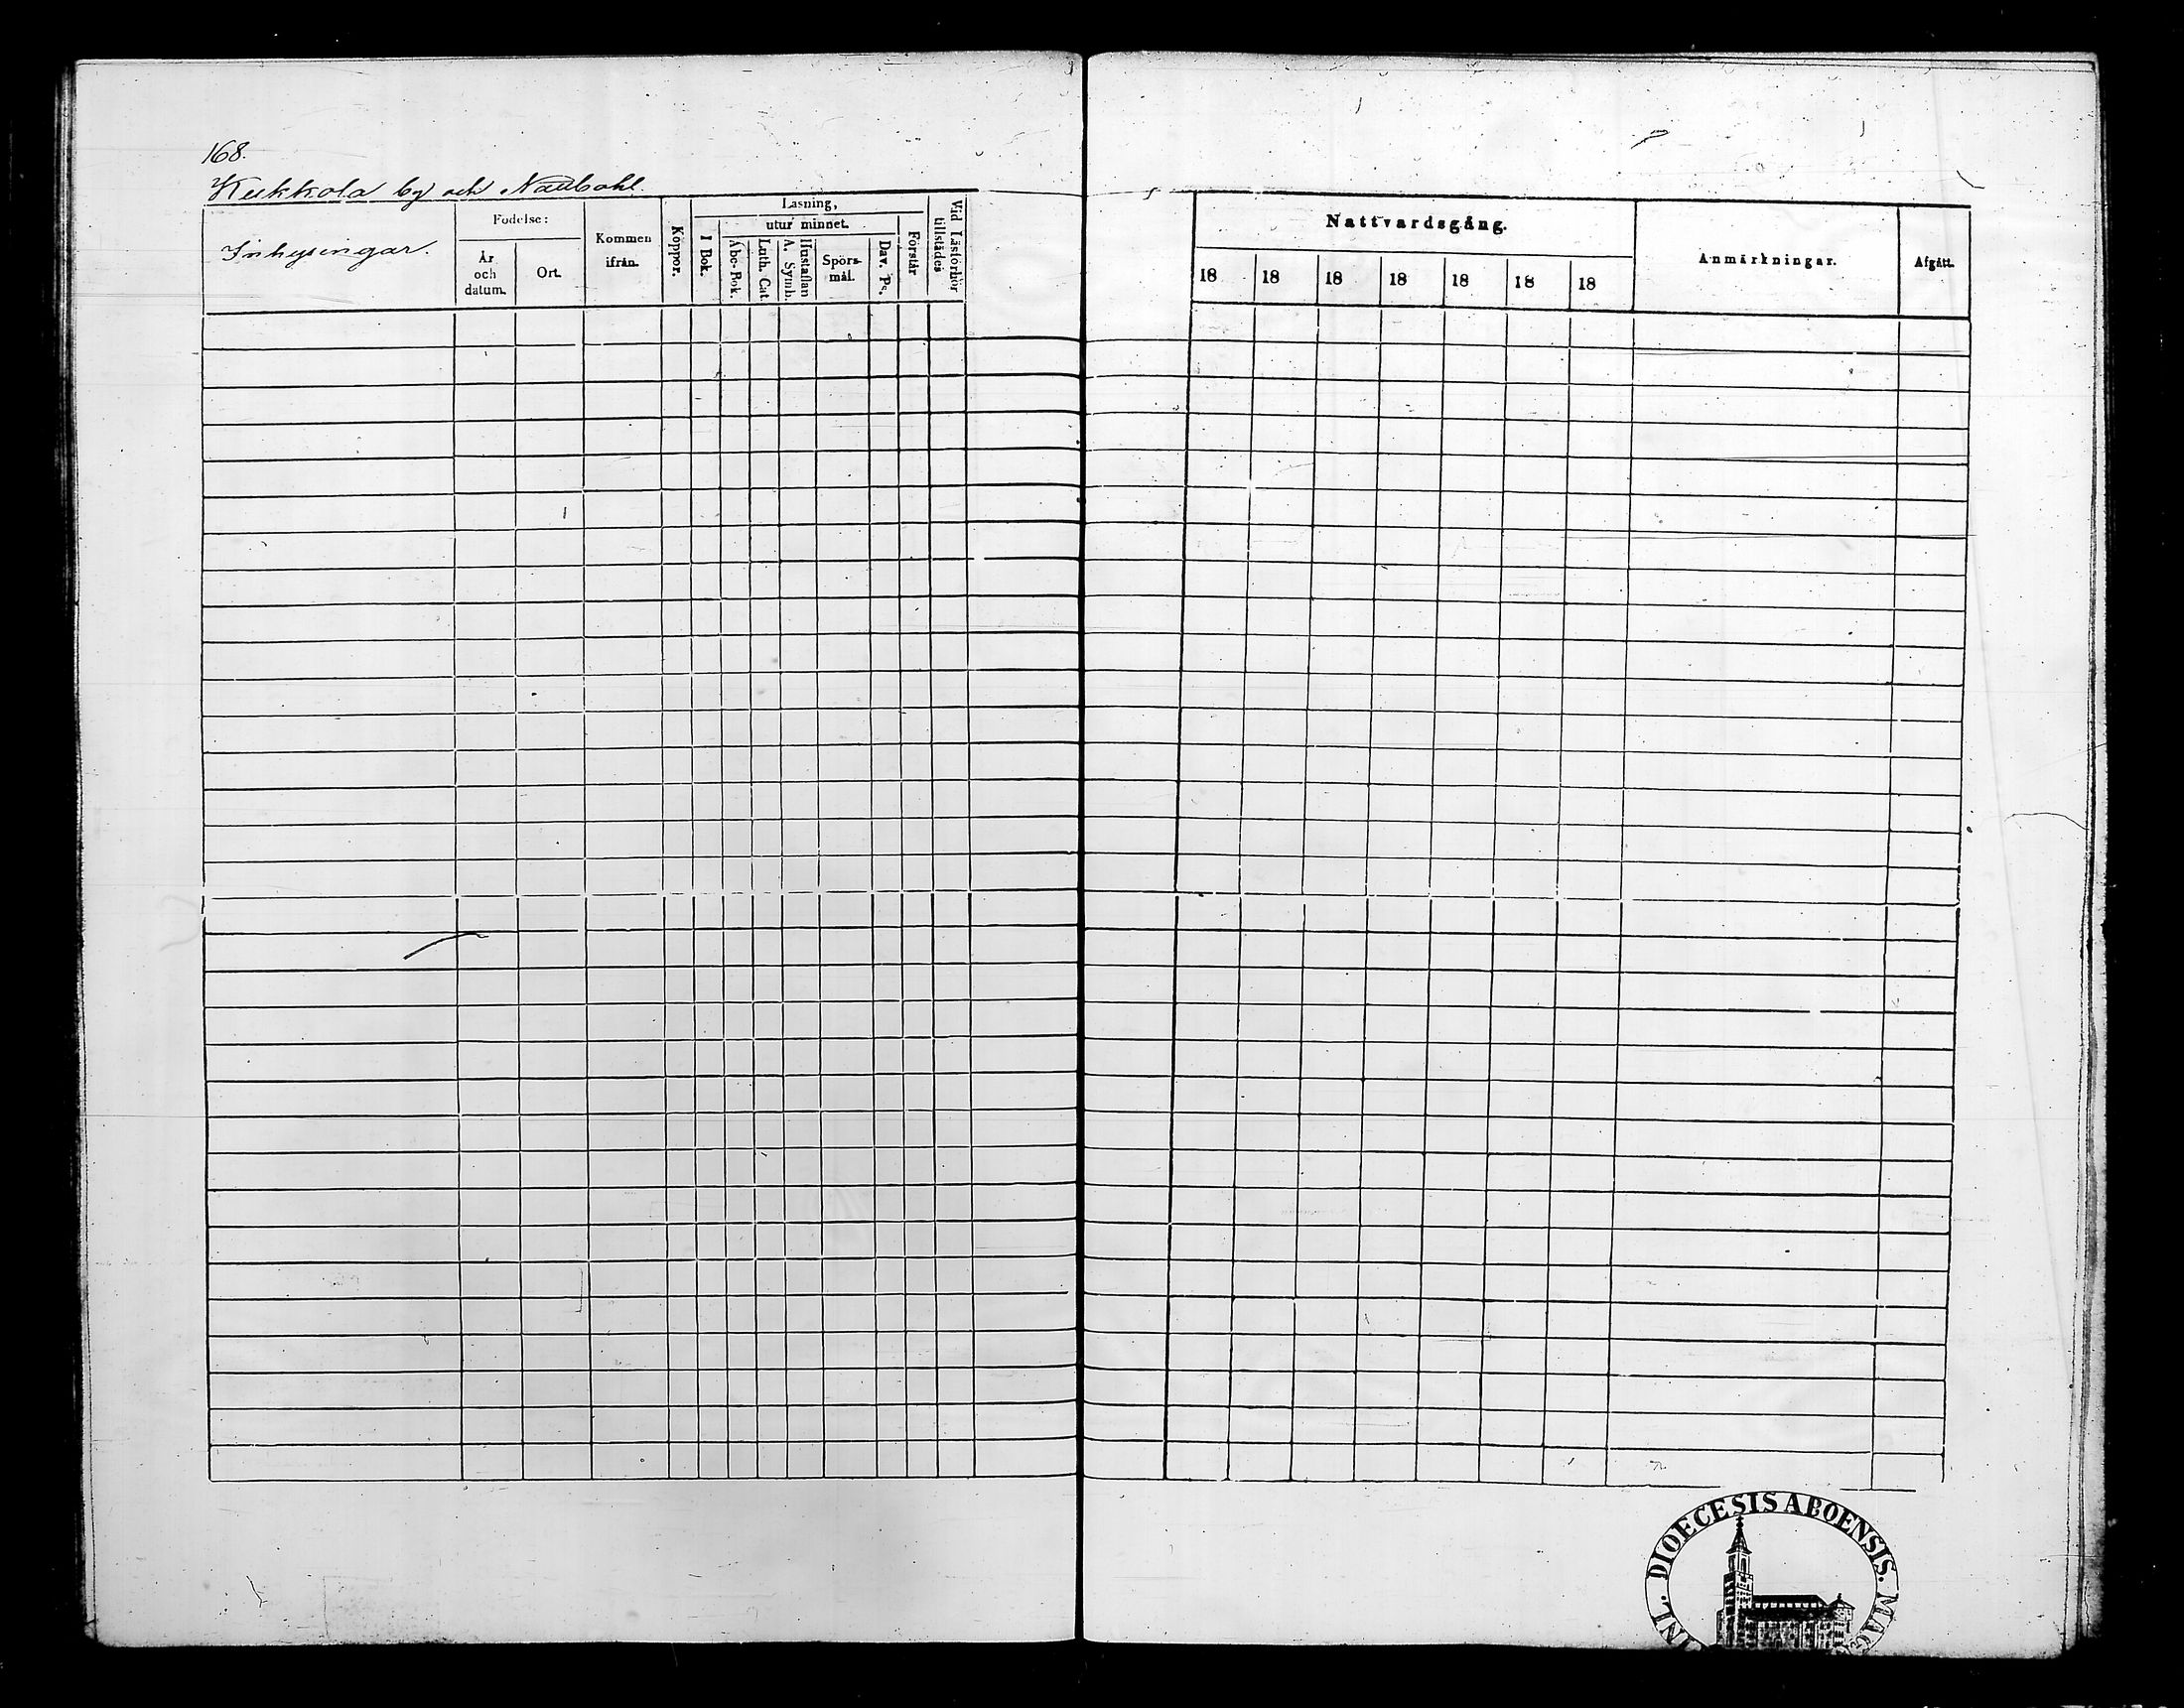 168.
Kukkola by och Naubohl.
Inhysingar.
Födelse:
År och datum.
Ort.
Kommen ifrån.
Koppor.
Läsning,
utur minnet.
I Bok.
Abc-Bok.
Luth. Cat.
Hustaflan
A. Symb.
Spörs-
mål.
Dav. Ps.
Förstår
Vid Läsförhör
tillstädes
Nattvardsgång.
18 18 18 18 18 18 18
Anmärkningar.
Afgått.
DIOECESIS ABOENSIS. MAG